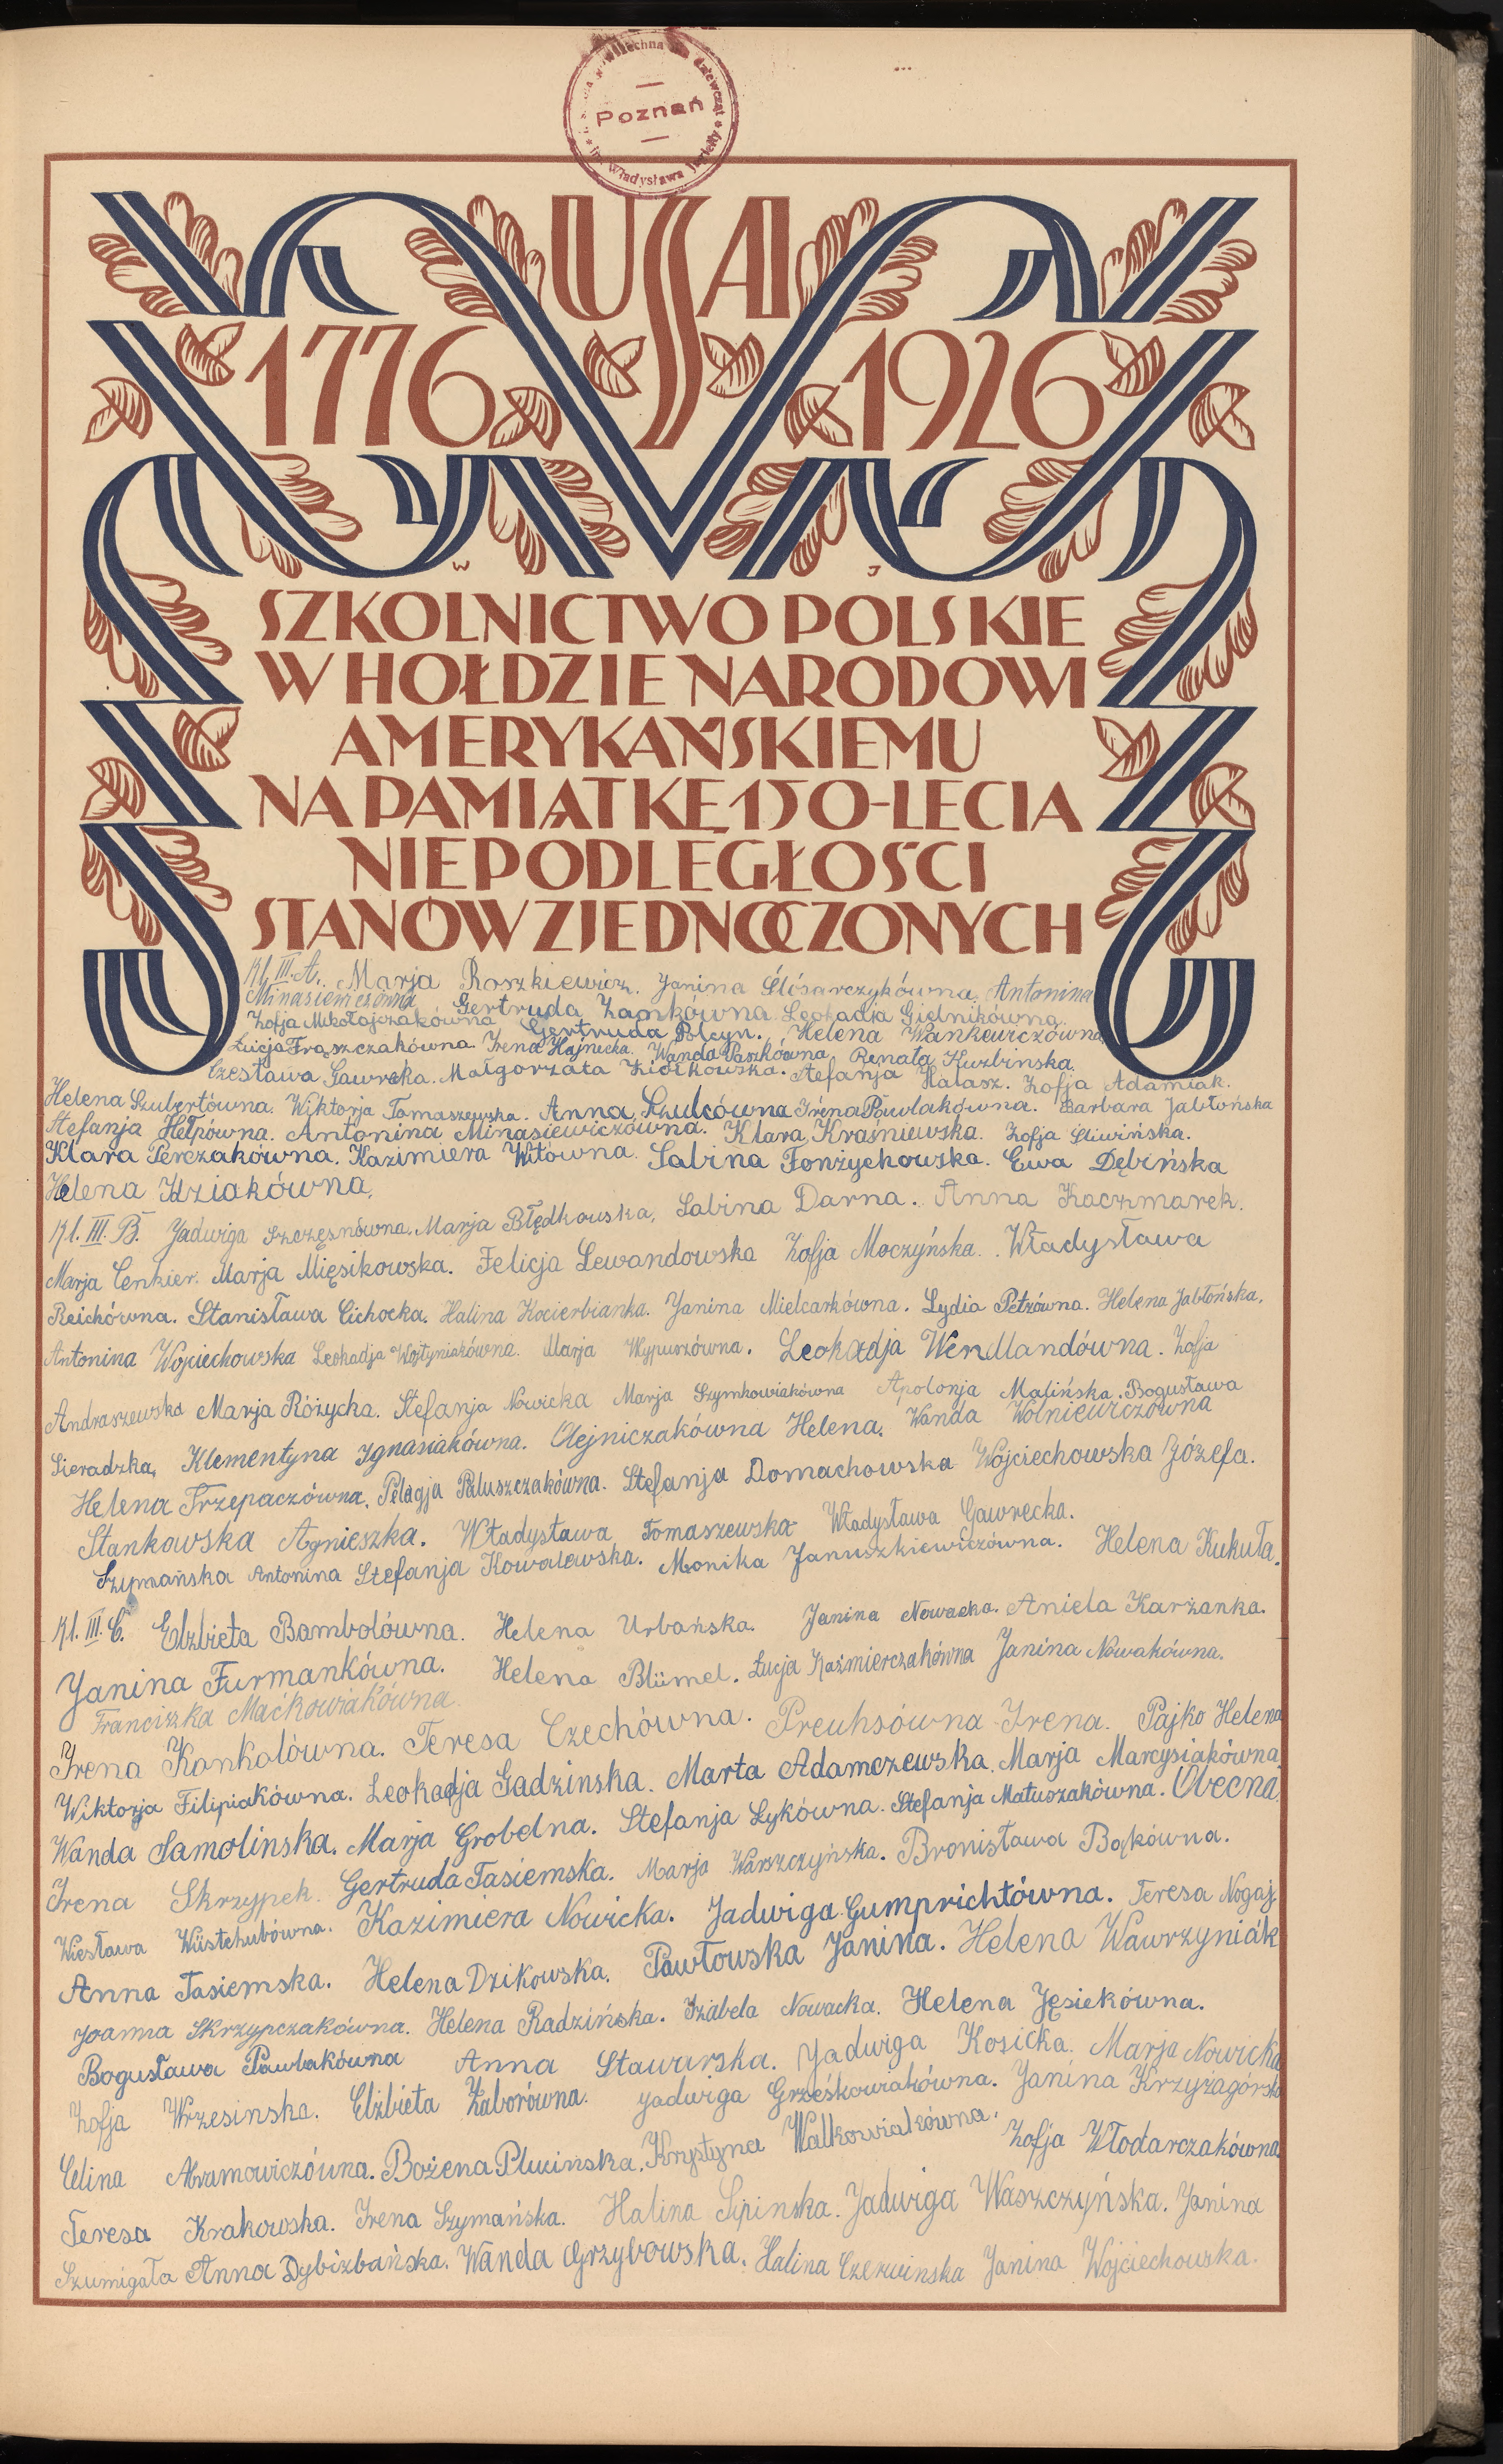 Poznań
Władysława
USA
1776 1926
W J
SZKOLNICTWO POLSKIE
W HOŁDZIE NARODOWI
AMERYKAŃSKIEMU
NA PAMIĄTKĘ 150-LECIA
NIEPODLEGŁOŚCI
STANÓW ZJEDNOCZONYCH
Kl. III. A. Marja Roszkiewicz. Janina Ślósarczykówna. Antonina
Gertruda Zamkówna Leokadja Gielnikówna.
Zofja Mikołajczakówna Gertruda Polcyn. Helena Wankewiczówna
Łucja Frąszczakówna. Irena Hajnecka. Wanda Paszkówna Renata Kuzbinska.
Czesława Gawrcka. Małgorzata Ziółkowska. Stefanja Halasz. Zofja Adamiak.
Helena Szubertówna. Wiktorja Tomaszewska. Anna Szulcówna Irena Pawlakówna. Barbara Jabłońska
Stefanja Helpówna. Antonina Minasiewiczówna. Klara Kraśniewska. Zofja Śliwińska.
Klara Perczakówna. Kazimiera Witówna. Sabina Fonżychowska. Ewa Dębińska
Helena Idziakówna.
Kl. III. B. Jadwiga Szczęsnówna. Marja Błędkowska. Sabina Darna. Anna Kaczmarek.
Marja Cenkier. Marja Mięsikowska. Felicja Lewandowska Zofja Moczyńska. Władysława
Reichówna. Stanisława Cichocka. Halina Kocierbianka. Janina Mielcarkówna. Lydia Petzówna. Helena Jabłońska.
Antonina Wojciechowska Leokadja Wojtyniakówna. Marja Wypuszówna. Leokadja Wendlandówna. Zofja
Andraszewska Marja Różycka. Stefanja Nowicka Marja Szymkowiakówna Apolonja Malińska. Bogusława
Sieradzka, Klementyna Ignasiakówna. Olejniczakówna Helena. Wanda Wolniewiczówna
Helena Trzepaczówna. Pelagja Paluszczakówna. Stefanja Domachowska Wojciechowska Józefa.
Stankowska Agnieszka. Władysława Tomaszewska Władysława Gawrecka.
Szymańska Antonina Stefanja Kowalewska. Monika Januszkiewiczówna. Helena Kukuła.
Kl. III. C. Elżbieta Bambolówna. Helena Urbańska. Janina Nowacka. Aniela Karżanka.
Janina Furmankówna. Helena Blümel. Łucja Kaźmierczakówna Janina Nowakówna.
Franciszka Maćkowiakówna.
Irena Kankalówna. Teresa Czechówna. Preuhsówna Irena. Pajko Helena
Wiktorja Filipiakówna. Leokadja Gadzinska. Marta Adamczewska. Marja Marcysiakówna
Wanda Samolinska. Marja Grobelna. Stefanja Łykówna. Stefanja Matuszakówna. Obecna.
Irena Skrzypek. Gertruda Tasiemska. Marja Warszczyńska. Bronisława Bąkówna.
Wiesława Wüstehubówna. Kazimiera Nowicka. Jadwiga Gumprichtówna. Teresa Nogaj.
Anna Tasiemska. Helena Dzikowska. Pawłowska Janina. Helena Wawrzyniak
Joanna Skrzypczakówna. Helena Radzińska. Izabela Nowacka. Helena Jęsiekówna.
Bogusława Pawlakówna Anna Stawarska. Jadwiga Kosicka. Marja Nowicka
Zofja Wrzesinska. Elżbieta Zaborówna. Jadwiga Grześkowiakówna. Janina Krzyżagórska
Celina Abramowiczówna. Bożena Plucińska. Krystyna Walkowiakówna. Zofja Włodarczakówna
Teresa Krakowska. Irena Szymańska. Halina Lipinska. Jadwiga Waszczyńska. Janina
Szumigała Anna Dybizbańska. Wanda Grzybowska. Halina Czerwinska Janina Wojciechowska.